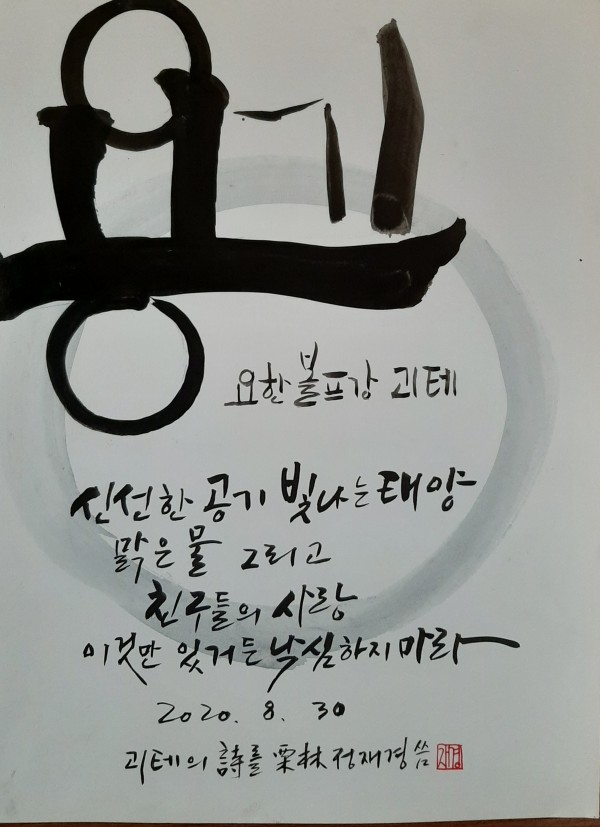 용기
요한 볼프강 괴테
신선한 공기 빛나는 태양
맑은 물 그리고
친구들의 사랑
이것만 있거든 낙심하지 마라
2020. 8. 30
괴테의 詩를 栗林 정재경 씀 재경